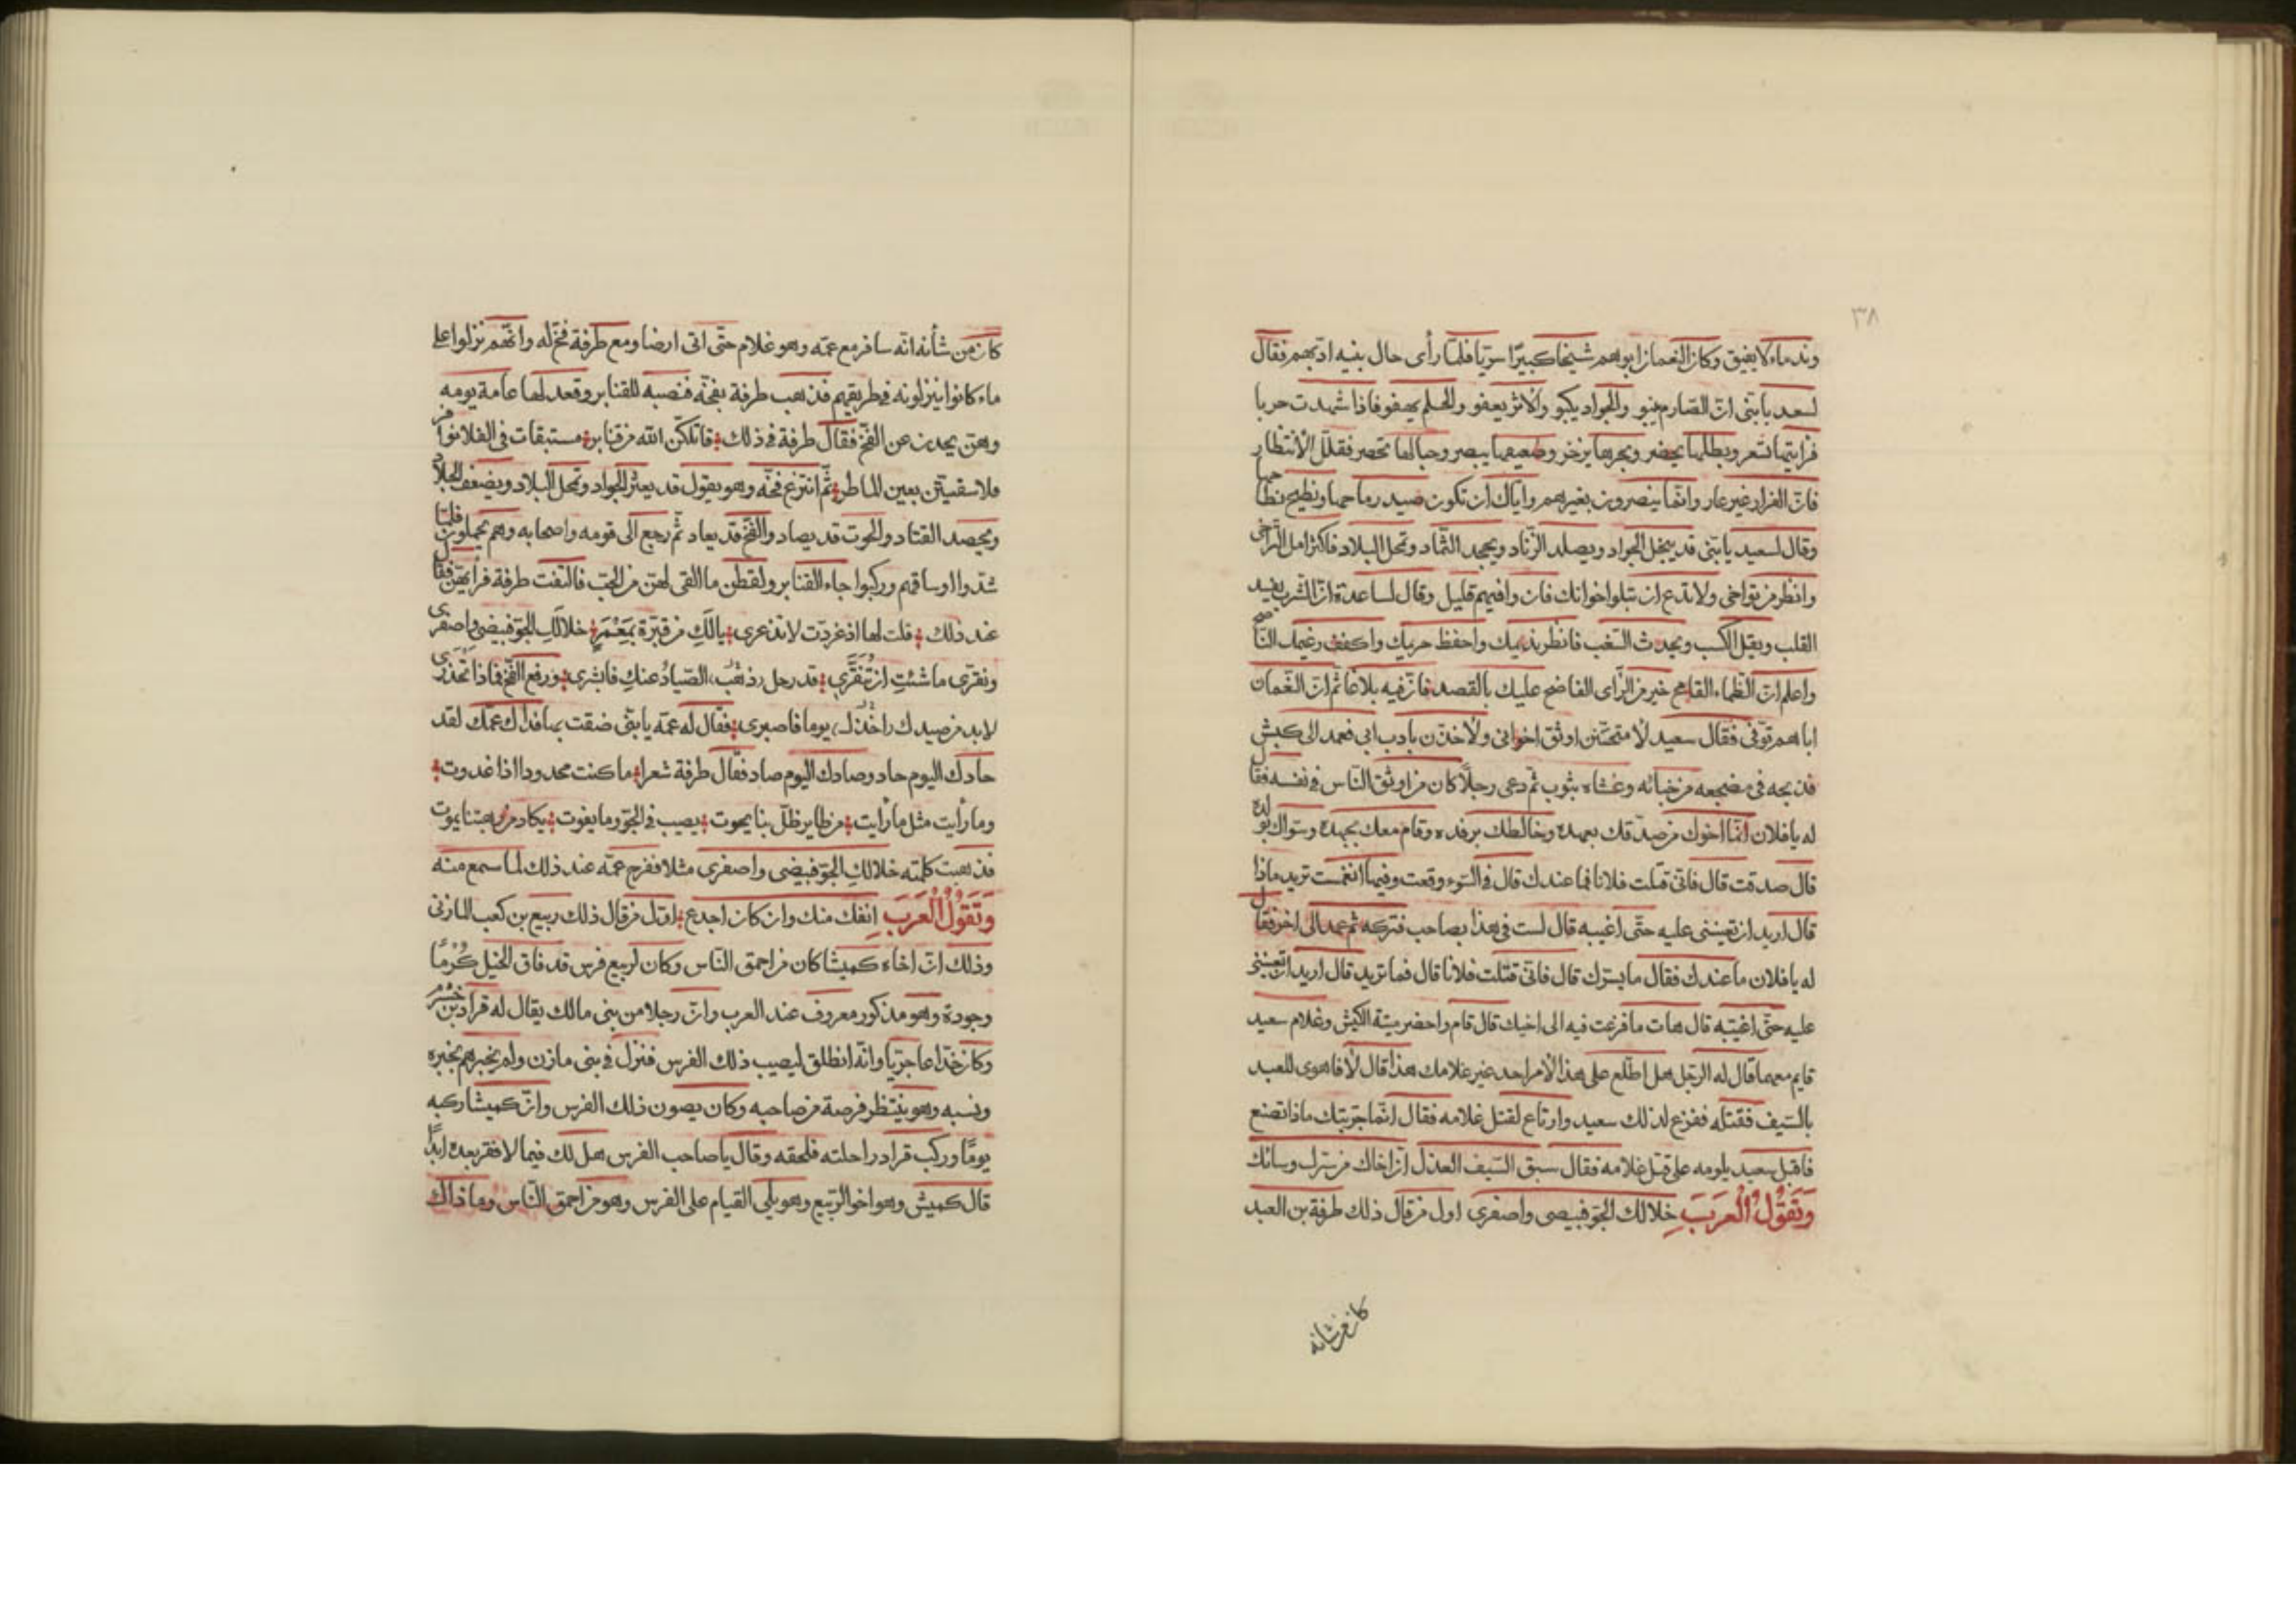 ٣٨
وندماء لا يفيق وكان النعمان ابوهم شيخا كبيرًا سريّا فلمّا رأى حال بنيه ادّبهم فقال
لسعد يا بنى انّ الصّارم ينبو والجواد يكبو والاثر يعفو والحلم يهفو فاذا شهدت حربا
فرايتها تسعر وبطلها يخضر وبحرها يزخر وضعيفها يبصر وجبالها تحصر فقلّل الانتظار
فانّ الفرار غير عار وانّما ينصرون بغيرهم وايّاك ان تكون صيد رماحها ونطيح نطاحها
وقال لسعيد يا بنى قد يبخل الجواد ويصلد الزّناد ويجمد الثّماد وتمحل البلاد فاكثر امل التراخى
وانظر من تواخى ولا تدع ان تبلو اخوانك فان وافيهم قليل وقال لساعدة انّ الشرب يفسد
القلب ويقل الكسب ويحدث السّغب فانظر نديمك واحفظ حريمك واكفف رغيمك الناصح
واعلم انّ الظماء القامح خير من الرّأى الفاضح عليك بالقصد فانّ فيه بلاغا ثم انّ النّعمان
اباهم توفّى فقال سعيد لأمتحنّن اوثق اخوانى ولأخذنّ بادب ابى فعمد الى كبش
فذبحه فى مضجعه من خبائه وغشاه بثوب ثم دعى رجلًا كان من اوثق النّاس فى نفسه فقال
له يا فلان انّما اخوك من صدقك بعهده وخالطك برفده وقام معك بجهده وسواك بولده
قال صدقت قال فانّى قتلت فلانا فما عندك قال فى السّوء وقعت وفيما انغمست تريد ماذا
قال اريد ان تعيننى عليه حتّى اغيبه قال لست فى هذا بصاحب فتركه ثم عمد الى اخر فقال
له يا فلان ما عندك فقال ما يسرّك قال فانّى قتلت فلانا قال فما تريد قال اريد ان تعيننى
عليه حتّى اغيّبه قال هات ما فرغت فيه الى اخيك قال قام واحضر ميتة الكبش وغلام سعيد
قايم معهما قال له الرجل هل اطّلع على هذا الأمر احد غير غلامك هذا قال لا فاهوى للعبد
بالسّيف فقتله ففزع لذلك سعيد وارتاع لقتل غلامه فقال انّما جرّبتك ماذا تصنع
فاقبل سعيد يلومه على قتل غلامه فقال سبق السّيف العذل انّ اخاك من سرّك وساءك
وَتَقُولُ الْعَرَبَ خلا لك الجوّ فبيضى واصفرى اول من قال ذلك طرفة بن العبد
كان من شانه
كان من شأنه انّه سافر مع عمّه وهو غلام حتّى اتى ارضا ومع طرفة فخّ له وانّهم نزلوا على
ماء كانوا ينزلونه فى طريقهم فذهب طرفة بفخّه فنصبه للقنابر وقعد لها عامة يومه
وهنّ يحدن عن الفخّ فقال طرفة فى ذلك قاتلكنّ الله من قنابر مستبقات فى الفلا نوافر
فلا سقيتنّ بعين الماطر ثم انتزع فخّه وهو يقول قد يعثر الجواد وتمحل البلاد ويضعف الجلاد
ويحصد القتاد والحوت قد يصاد والفخّ قد يعاد ثم رجع الى قومه واصحابه وهم يحملون فلمّا
شدّوا اوساقهم وركبوا جاء القنابر ولقطن ما القى لهنّ من الحبّ فالتفت طرفة فرآهنّ فقال
عند ذلك قلت لها اذ غرّدت لا تذعرى يا لكِ من قبّرة بمَعْمَرٍ خلا لكِ الجوّ فبيضى واصفرى
ونقّرى ما شئتِ ان تُنَقَّرى قد رحل ذهب الصّيادُ عنكِ فابشرى ورفع الفخّ فماذا تحذرى
لا بد من صيدك اخذك يوما فاصبرى فقال له عمّه يا بنىّ ضقت بما فداك عمّك لقد
حادك اليوم حاد وصادك اليوم صاد فقال طرفة شعرا ما كنت محدودا اذا غدوت
وما رأيت مثل ما رأيت من طاير ظلّ بنا يحوت يصيب فى الجوّ وما يفوت يكاد من رهبتنا يموت
فذهبت كلمته خلا لكِ الجوّ فبيضى واصفرى مثلا ففرح عمّه عند ذلك لما سمع منه
وَتَقُولُ الْعَرَبَ انفك منك وان كان اجدع اول من قال ذلك ربيع بن كعب المازنى
وذلك انّ اخاه كميشا كان من احمق النّاس وكان لربيع فرس قد فاق الخيل كرمًا
وجودة وهو مذكور معروف عند العرب وانّ رجلا من بنى مالك يقال له قراد بن جَرْم
وكان خدّاعا جريّا وانّه انطلق ليصيب ذلك الفرس فنزل فى بنى مازن ولم يخبرهم بخبره
ونسبه وهو ينتظر فرصة من صاحبه وكان يصون ذلك الفرس وانّ كميشا ركبه
يومًا وركب قراد راحلته فلحقه وقال يا صاحب الفرس هل لك فيما لا فقر بعده ابدًا
قال كميش وهو اخو الرّبيع وهو يلى القيام على الفرس وهو من احمق النّاس وما ذاك